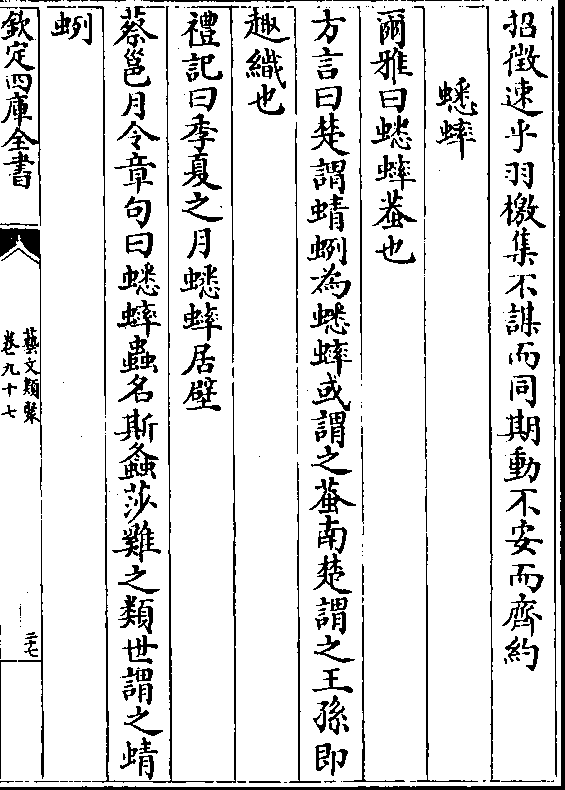 招徵速乎羽檄集不謀而同期動不安而齊約
蟋蟀
爾雅曰蟋蟀蛬也
方言曰楚謂蜻蛚為蟋蟀或謂之蛬南楚謂之王孫即
趣織也
禮記曰季夏之月蟋蟀居壁
蔡邕月令章句曰蟋蟀蟲名斯螽莎雞之類世謂之蜻
蛚
欽定四庫全書
藝文類聚
卷九十七
二十七